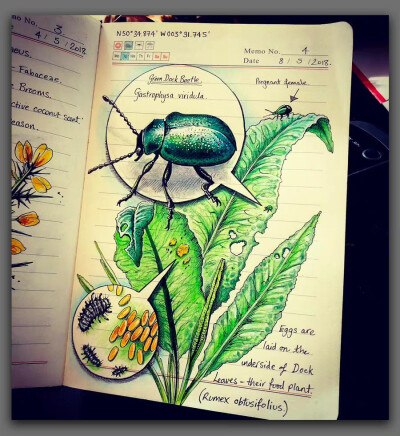 No. 3
4 / 5 / 2018
Fabaceae
Brooms.
coconut scent'
eason.
N50°34.874' W003°31.745'
Memo No. 4
Date 8 / 5 / 2018.
Green Dock Beetle
Gastrophysa viridula.
Pregnant female
Eggs are
laid on the
underside of Dock
Leaves - their food plant.
(Rumex obtusifolius.)